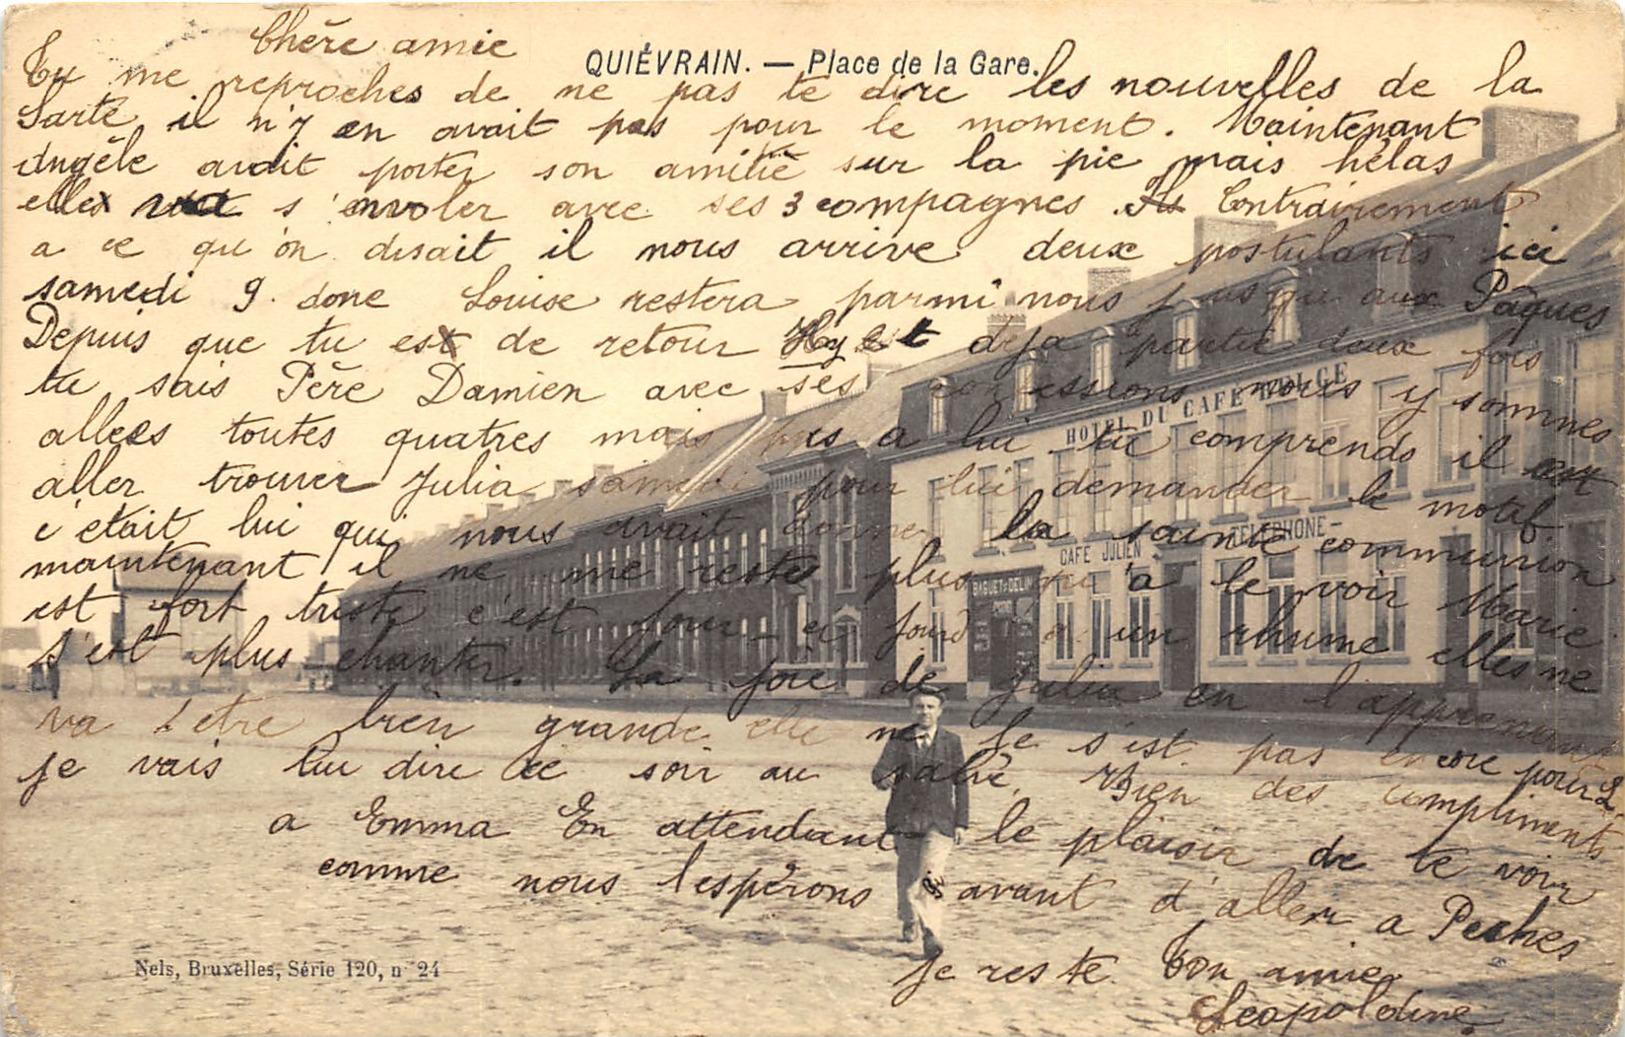 Chère amie
QUIÉVRAIN. — Place de la Gare.
Tu me reproches de ne pas te dire les nouvelles de la
Sarte il n'y en avait pas pour le moment. Maintenant
Angèle avait porter son amitié sur la pie mais hélas
elle va s'envoler avec ses 3 compagnes. Contrairement
a ce qu'on disait il nous arrive deux postulants ici
samedi 9. donc Louise restera parmi nous jusqu aux Pâques
Depuis que tu est de retour déja partie deux fois
tu sais Père Damien avec ses confessions nous y sommes
allees toutes quatres mais pas a lui tu comprends il est
aller trouver Julia samedi pour lui demander le motif
c'était lui qui nous avait donner la sainte communion
maintenant il ne me reste plus qu'a le voir Marie
est fort triste c'est un rhume elles ne
s'est plus chanter. La joie de Julia en l'apprenant
va être bien grande elle ne le s'est pas encore
je vais lui dire ce soir au salut. Bien des compliments
a Emma En attendant le plaisir de te voir
comme nous l'espérons avant d'aller a Pesches
je reste ton amie
Leopoldine
HOTEL DU CAFÉ BELGE
CAFÉ JULIEN
TÉLÉPHONE
BAGUET-DELIN
Nels, Bruxelles, Série 120, n° 24